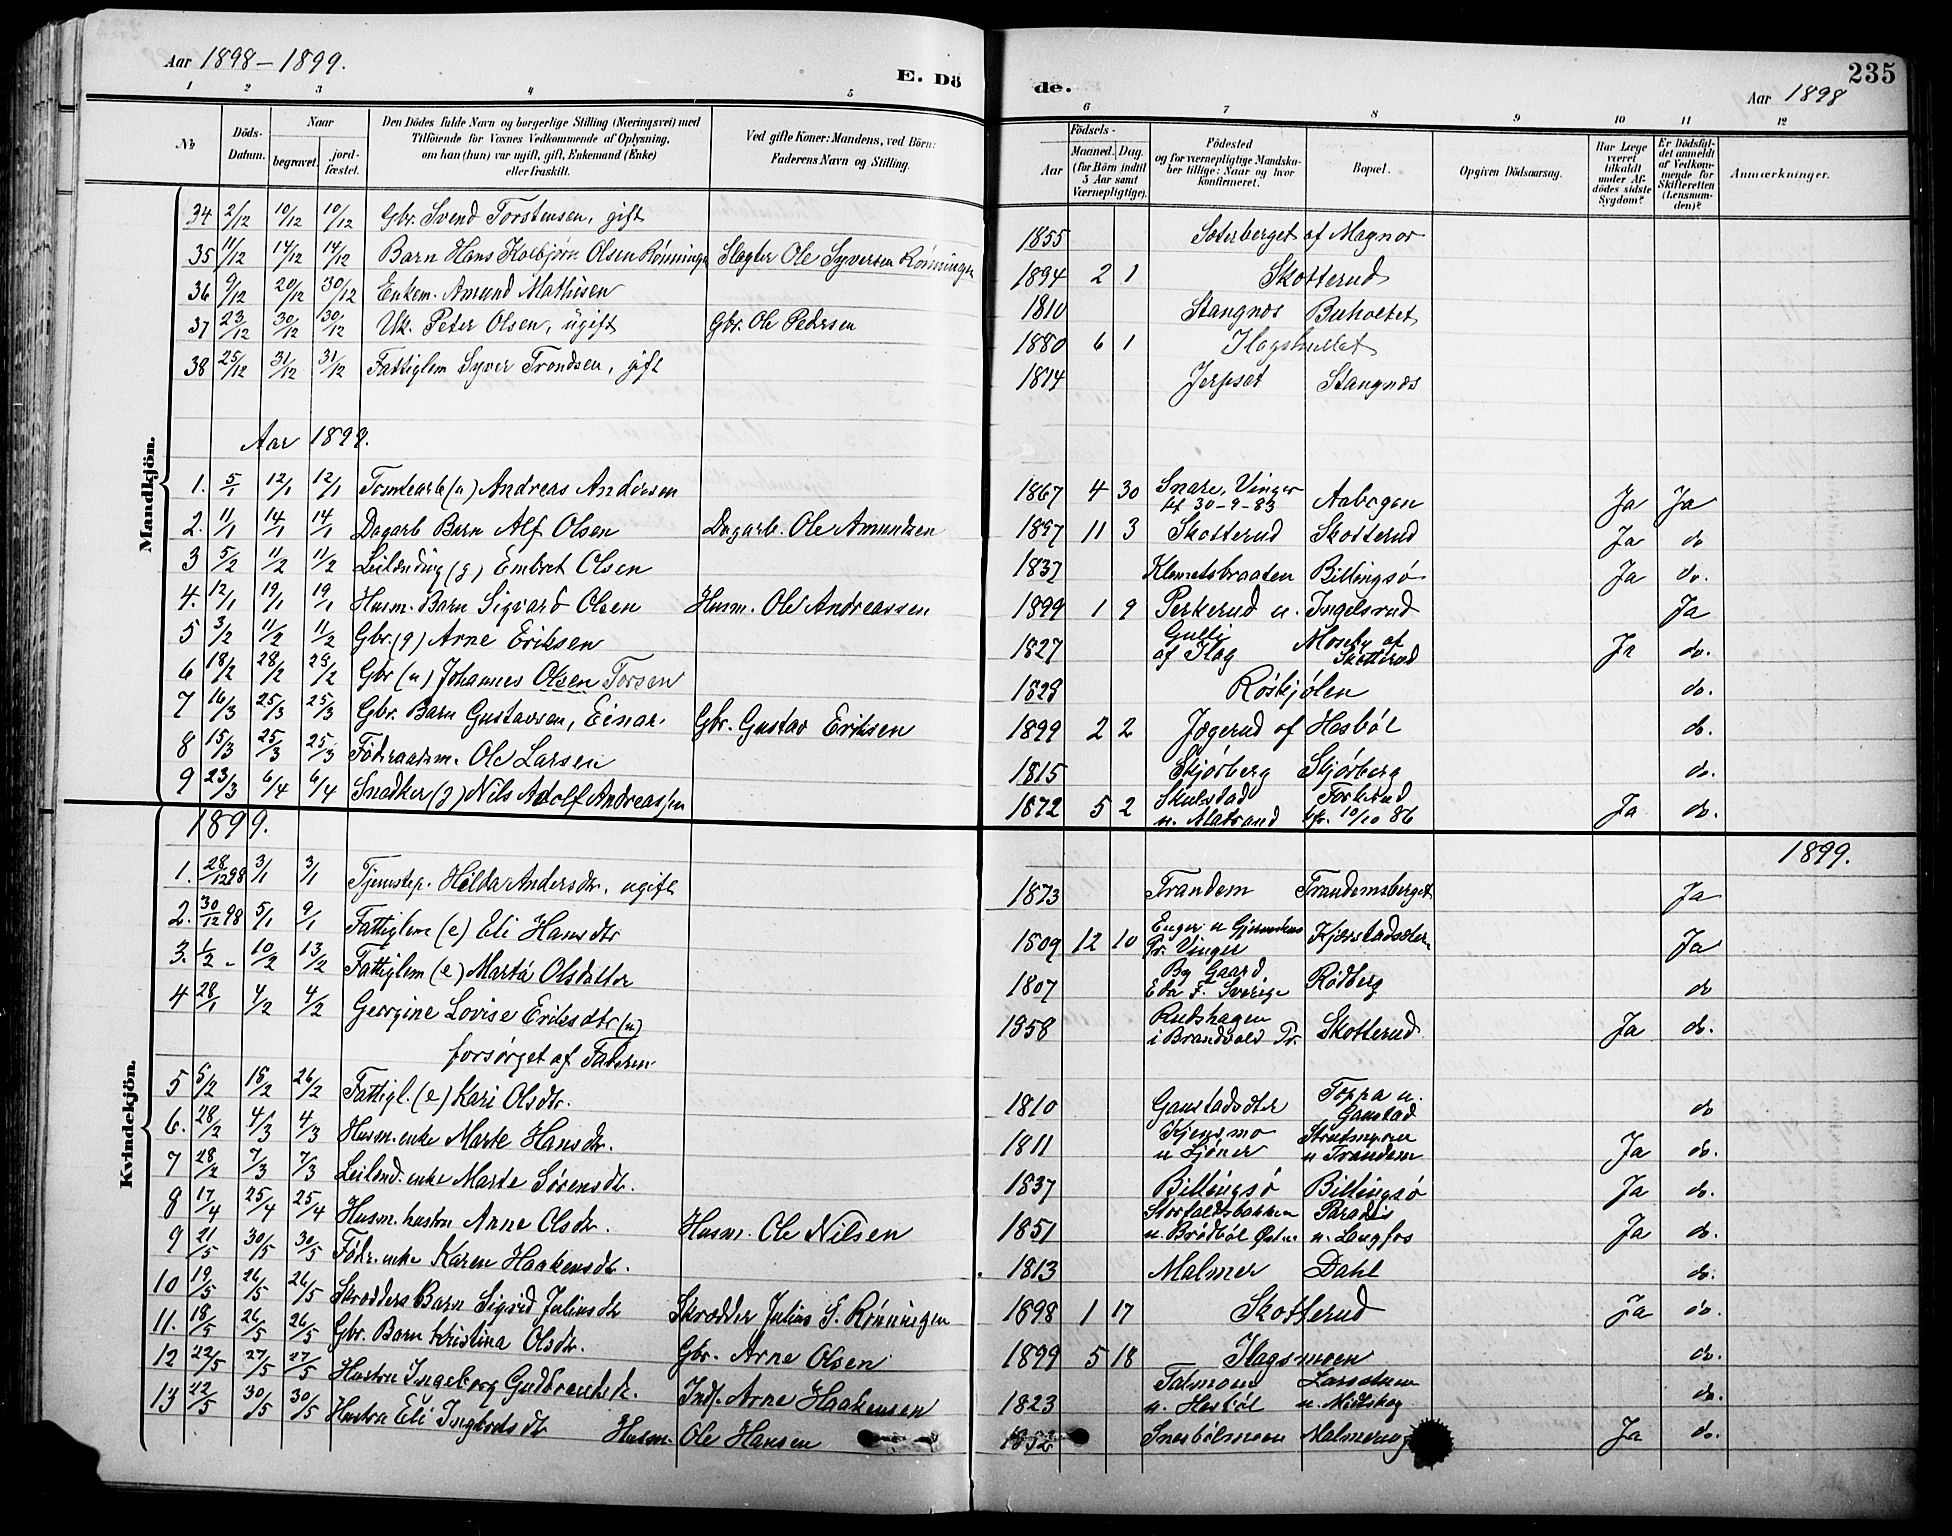 Aar 1898–1899.
E. Dö
de.
235
Aar 1898
1 2 3 4 5 6 7 8 9 10 11 12
No
Döds-Datum.
Naar
begravet.
jord-fæstet.
Den Dödes fulde Navn og borgerlige Stilling (Næringsvei) med
Tilföiende for Voxnes Vedkommende af Oplysning,
om han (hun) var ugift, gift, Enkemand (Enke)
eller fraskilt.
Ved gifte Koner: Mandens, ved Börn:
Faderens Navn og Stilling.
Födsels-
Aar
Maaned. Dag.
(for Börn indtil
5 Aar samt
Værnepligtige).
Födested
og for værnepligtige Mandska-
ber tillige: Naar og hvor
konfirmeret.
Bopæl.
Opgiven Dödsaarsag.
Har Læge
været
tilkaldt
under Af-
dödes sidste
Sygdom?
Er Dödsfal-
det anmeldt
af Vedkom-
mende for
Skifteretten
(Lensman-
den)?
Anmærkninger.
Mandkjön.
34 2/12 10/12 10/12 Gbr. Svend Torstensen, gift 1855 Sæterberget af Magnor
35 11/12 14/12 14/12 Barn Hans Kolbjørn Olsen Rønningen Slagter Ole Syversen Rønningen 1894 2 1 Skotterud
36 9/12 20/12 30/12 Enkem. Amund Mathisen 1810 Stangnæs Buholtet
37 23/12 30/12 30/12 Uk. Peter Olsen, ugift Gbr. Ole Pedersen 1880 6 1
38 25/12 31/12 31/12 Fattiglem Syver Trondsen, gift 1814 Jerpset Stangnæs
Aar 1899.
1. 5/1 12/1 12/1 Tomtearb (u) Andreas Andersen 1867 4 30 Snare, Vinger kf 30-9-83 Aabogen Ja Ja
2. 11/1 14/1 14/1 Dagarb Barn Alf Olsen Dagarb. Ole Amundsen 1897 11 3 Skotterud Skotterud Ja do
3 5/2 11/2 11/2 Leilænding (g) Embret Olsen 1837 Klemetsbraaten Billingsø Ja do.
4. 12/1 19/1 19/1 Husm. Barn Sigvard Olsen Husm. Ole Andreassen 1899 1 9 Perkerud u. Ingelsrud Ja
5 3/2 11/2 11/2 Gbr. (g) Arne Eriksen 1827 Gulli af Flag Moseby af Skotterud Ja do.
6 18/2 28/2 28/2 Gbr (u) Johannes Olsen Torsen 1828 do.
7 16/3 25/3 25/3 Gbr. Barn Gustavsen, Einar. Gbr. Gustav Eriksen 1899 2 2 Jægerud af Hesbøl do.
8 15/3 25/3 25/3 Føderaadsm. Ole Larsen 1815 Skjørberg Skjørberg do.
9 23/3 6/4 6/4 Snedker (g) Nils Adolf Andreassen 1872 5 2 Skulstad u. Matrand kfr. 10/10 86 Ja do.
Kvindekjön.
1899. 1899.
1. 28/12 98 3/1 3/1 Tjenstep. Hilda Andersdtr. ugift 1873 Trandem Trandemsberget Ja
2. 30/12 98 5/1 9/1 Fattiglem (e) Eli Hansdtr 1809 12 10 Pr. Vinger Ja
3. 1/2 10/2 13/2 Fattiglem (e) Marta Olsdatter 1807 By Gaard, Eda F. Sverige Rødberg do
4 28/1 4/2 4/2 Georgine Lovise Eriksdtr (u) 1858 Rudshagen i Brandvold Pr. Skotterud Ja do.
forsørget af Faderen
5 5/2 15/2 26/2 Fattigl. (e) Kari Olsdtr. 1810 Ganstadsæter Toppa u. Ganstad do
6. 28/2 4/3 4/3 Husm. enke Marte Hansdtr. 1811 Kjensmo u Sjøner u Trandem Ja do.
7 28/2 7/3 7/3 Leilænd. enke Marte Sørensdtr. 1837 Billingsø Billingsø Ja do.
8 17/4 25/4 25/4 Husm. hustru Anne Olsdtr. Husm. Ole Nilsen 1851 u. Brødbøl Østre Paradis u. Langfos Ja do.
9 21/5 30/5 30/5 Fødr. enke Karen Haakensdtr. 1813 Malmer Dahl do.
10 19/5 26/5 26/5 Skrædders Barn Sigrid Juliusdtr Skrædder Julius E. Rønningen 1898 1 17 Skotterud Ja do.
11. 18/5 26/5 26/5 Gbr. Barn Kristina Olsdtr. Gbr. Arne Olsen 1899 5 18 Flagsmoen do.
12 22/5 27/5 27/5 Hustru Ingeborg Gudbrandsdtr. Indf. Arne Haakensen 1823 u. Hesbøl u. Midtskog do.
13 22/5 30/5 30/5 Hustru Eli Ingbretsdtr Husm. Ole Hansen 1852 Snesbølmoen Ja do.